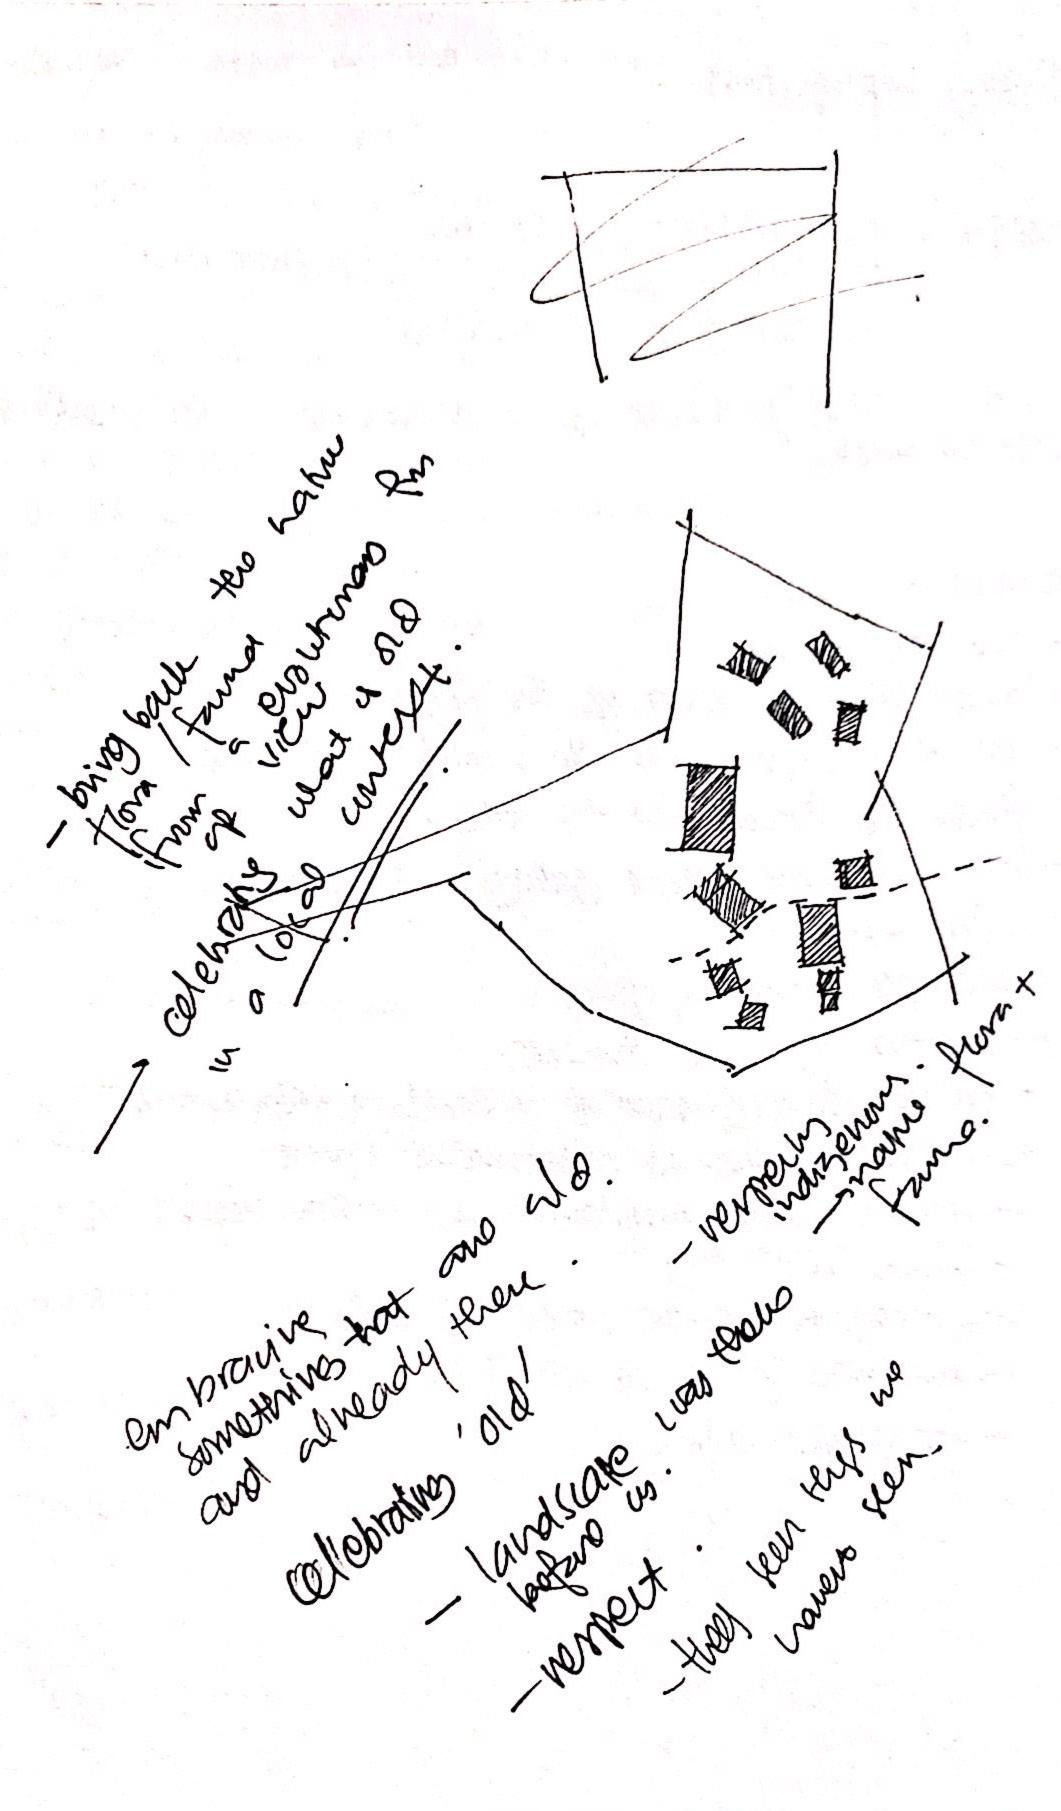 - bring back the native
flora / fauna
from a evolutionary
view
what is old
context.
celebrating
in a local
- respecting
indigenous.
→ native flora +
fauna.
embracing
something that are old.
and already there.
celebrating 'old'
- landscape was there
before us.
- respect.
- they seen things we
haven't seen.